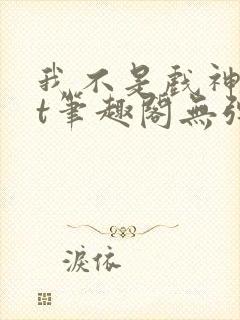 我不是戏神
t筆趣閣無弹
淚依